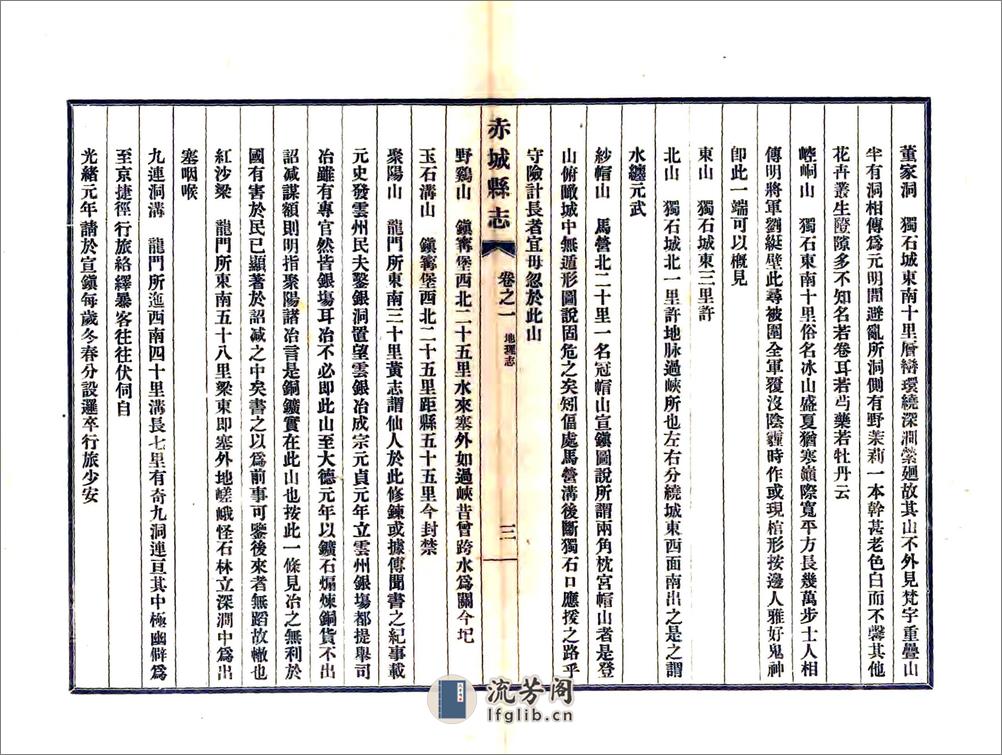 董家洞　獨石城東南十里層巒環繞深澗縈廻故其山不外見梵宇重疊山
半有洞相傳爲元明閒避亂所洞側有野茉莉一本幹甚老色白而不馨其他
花卉叢生磴隙多不知名若卷耳若芍藥若牡丹云
崆峒山　獨石東南十里俗名冰山盛夏猶寒巔際寬平方長幾萬步士人相
傳明將軍劉綎壁此尋被圍全軍覆沒陰霾時作或現棺形按邊人雅好鬼神
卽此一端可以概見
東山　獨石城東三里許
北山　獨石城北一里許地脉過峽所也左右分繞城東西面南出之是之謂
水纏元武
紗帽山　馬營北二十里一名冠帽山宣鎭圖說所謂兩角枕宮帽山者是登
山俯瞰城中無遁形圖說固危之矣矧偪處馬營溝後斷獨石口應援之路乎
守險計長者宜毋忽於此山
赤城縣志　卷之一　地理志　三
野鷄山　鎭寗堡西北二十五里水來塞外如過峽昔曾跨水爲關今圮
玉石溝山　鎭寗堡西北二十五里距縣五十五里今封禁
聚陽山　龍門所東南三十里黃志謂仙人於此修鍊或據傳聞書之紀事載
元史發雲州民夫鑿銀洞置望雲銀冶成宗元貞元年立雲州銀塲都提舉司
冶雖有專官然皆銀塲耳冶不必即此山至大德元年以鑛石煽煉銅貨不出
詔減謀額則明指聚陽諸冶言是銅鑛實在此山也按此一條見冶之無利於
國有害於民已顯著於詔減之中矣書之以爲前事可鑒後來者無蹈故轍也
紅沙梁　龍門所東南五十八里梁東即塞外地嵯峨怪石林立深澗中爲出
塞咽喉
九連洞溝　龍門所迤西南四十里溝長七里有奇九洞連亘其中極幽僻爲
至京捷徑行旅絡繹暴客往往伏伺自
光緒元年請於宣鎭每歲冬春分設邏卒行旅少安
流芳阁
lfglib.cn